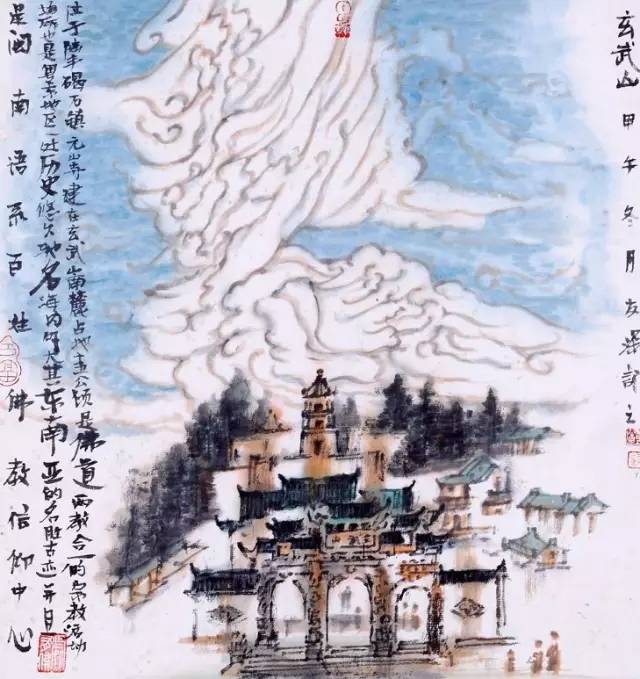 玄武山 甲午冬月友泽记之
位于陆丰碣石镇元山寺建在玄武山南麓占地壹公顷是佛道两教合一的宗教活动
场所也是粤东地区一处历史悠久驰名海内外尤其东南亚的名胜古迹并且
是闽南语系百姓佛教信仰中心